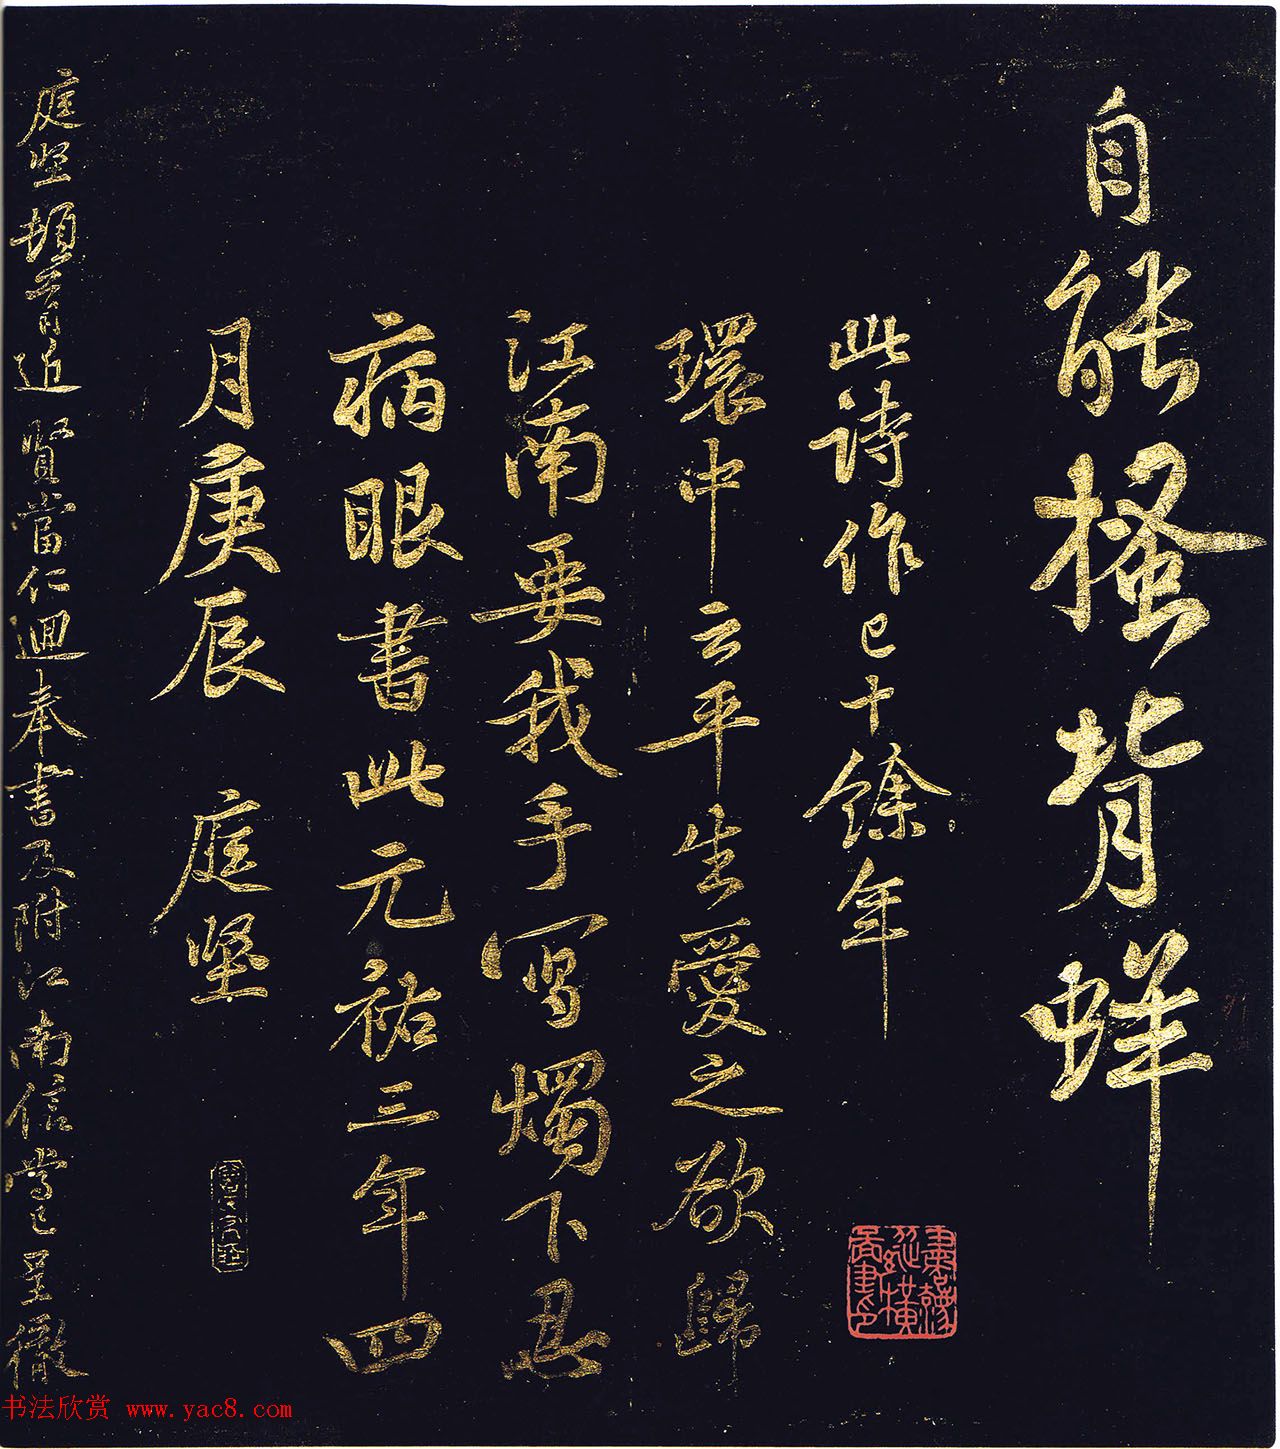 自能搔背蛘
此詩作已十餘年
環中云平生愛之欲歸
江南要我手寫燭下忍
病眼書此元祐三年四
月庚辰 庭堅
庭堅頓首近賢當仁迴奉書及附江南信當已呈徹
书法欣赏 www.yac8.com